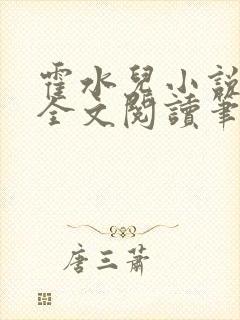 霍水兒小說
全文閱讀筆
唐三蕭